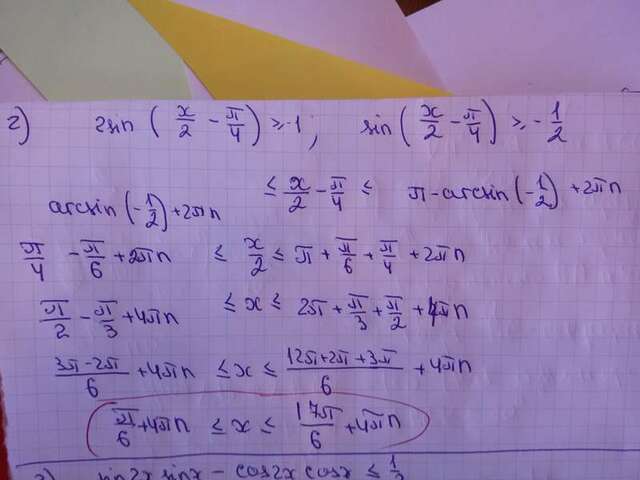 г) 2sin (x/2 - π/4) ≥ -1; sin(x/2 - π/4) ≥ -1/2
arcsin(-1/2) + 2πn ≤ x/2 - π/4 ≤ π - arcsin(-1/2) + 2πn
π/4 - π/6 + 2πn ≤ x/2 ≤ π + π/6 + π/4 + 2πn
π/2 - π/3 + 4πn ≤ x ≤ 2π + π/3 + π/2 + 4πn
(3π - 2π)/6 + 4πn ≤ x ≤ (12π + 2π + 3π)/6 + 4πn
π/6 + 4πn ≤ x ≤ 17π/6 + 4πn
sin2x sinx - cos2x cosx ≤ 1/